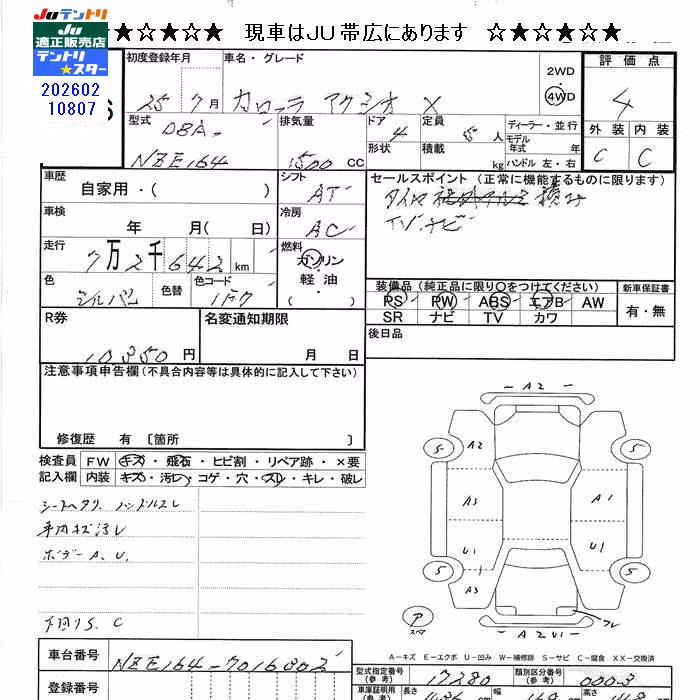 JUテントリ
JU
適正販売店
テントリ
☆スター
202602
10807
★☆★☆★☆ 現車はJU帯広にあります ☆★☆★☆★
初度登録年月
25 7月
車名・グレード
カローラ アクシオ X
2WD
4WD
評価点
4
外装 内装
C C
型式
DBA-
NZE164
排気量
1500 cc
ドア 4
定員 5 人
形状
積載 kg
ディーラー・並行
モデル年式 年
ハンドル 左・右
車歴
自家用・( )
シフト
AT
車検
年 月( 日)
冷房
AC
走行
7万2千642 km
燃料
ガソリン
軽油
( )
色
シルバー
色替
色コード
1F7
セールスポイント (正常に機能するものに限ります)
TV.ナビ
装備品(純正品に限り○をつけてください)
PS PW ABS エアB AW
SR ナビ TV カワ
新車保証書
有・無
R券
10350円
名変通知期限
月 日
後日品
注意事項申告欄(不具合内容等は具体的に記入して下さい)
修復歴 有 〔箇所 〕
検査員
記入欄
FW キズ・飛石・ヒビ割・リペア跡・×要
内装 キズ・汚レ・コゲ・穴・スレ・キレ・破レ
シートヘタリ ハンドルスレ
車内キズ汚レ
ボデーA、U、
下回りS、C
A2
S
A2
S
A3
A1
U1
U1
S
A3
S
P
スペア
A2U1
スレ
A-キズ E-エクボ U-凹み W-補修跡 S-サビ C-腐食 XX-交換済
車台番号
NZE164-7016802
登録番号
型式指定番号
(参考)
17280
類別区分番号
(参考)
0003
車庫証明用
(参考)
長さ
436
幅
169
高さ
148